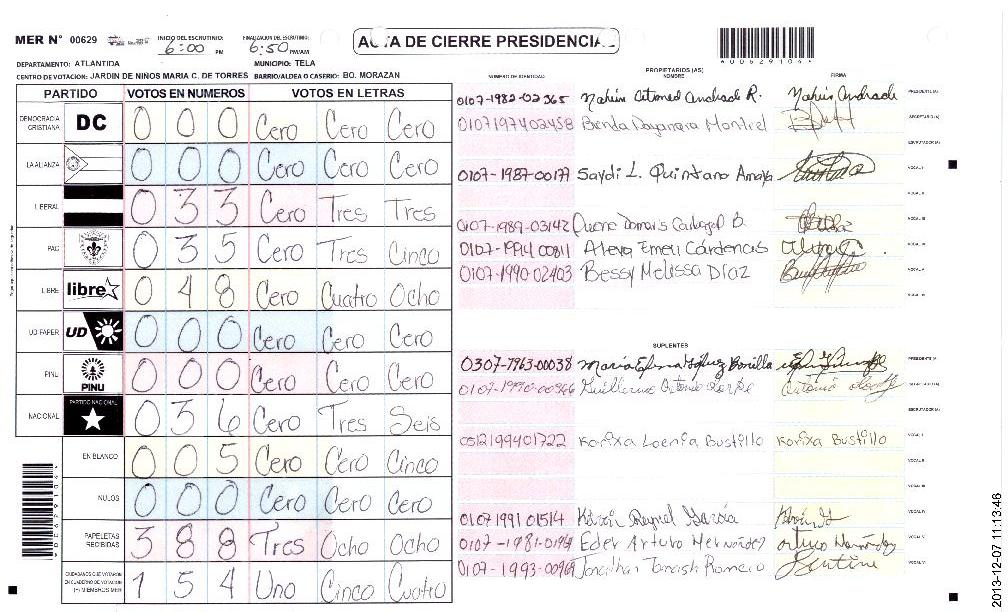 MER N° 00629
INICIO DEL ESCRUTINIO: 6:00 PM
FINALIZACION DEL ESCRUTINIO: 6:50 PM/AM
ACTA DE CIERRE PRESIDENCIAL
DEPARTAMENTO: ATLANTIDA
MUNICIPIO: TELA
CENTRO DE VOTACION: JARDIN DE NIÑOS MARIA C. DE TORRES BARRIO/ALDEA O CASERIO: BO. MORAZAN
PARTIDO VOTOS EN NUMEROS VOTOS EN LETRAS
DEMOCRACIA CRISTIANA DC 0 0 0 Cero Cero Cero
LA ALIANZA 0 0 0 Cero Cero Cero
LIBERAL 0 3 3 Cero Tres Tres
PAC 0 3 5 Cero Tres Cinco
LIBRE libre 0 4 8 Cero Cuatro Ocho
UD-FAPER UD 0 0 0 Cero Cero Cero
PINU PINU 0 0 0 Cero Cero Cero
NACIONAL PARTIDO NACIONAL 0 3 6 Cero Tres Seis
EN BLANCO 0 0 5 Cero Cero Cinco
NULOS 0 0 0 Cero Cero Cero
PAPELETAS RECIBIDAS 3 8 8 Tres Ocho Ocho
CIUDADANOS QUE VOTARON EN CUADERNO DE VOTACION (+) MIEMBROS MER 1 5 4 Uno Cinco Cuatro
NUMERO DE IDENTIDAD PROPIETARIOS (AS) NOMBRE FIRMA
0107-1982-02365 Andrade R. PRESIDENTE (A)
0107197402458 SECRETARIO (A)
ESCRUTADOR (A)
0107-1987-00177 Saydi L. Quintano Amaya VOCAL I
VOCAL II
0107-1989-03142 VOCAL III
0107-1994 00811 Cárdenas VOCAL IV
0107-1990-02403 Bessy Melissa Díaz VOCAL V
VOCAL VI
SUPLENTES
0307-1963-00038 Bonilla PRESIDENTE (A)
SECRETARIO (A)
ESCRUTADOR (A)
0512199401722 Bustillo Bustillo VOCAL I
VOCAL II
VOCAL III
0107 1991 01514 García VOCAL IV
Eder Arturo Hernández Arturo Hernández VOCAL V
0107-1993-00969 Romero VOCAL VI
2013-12-07 11:13:46